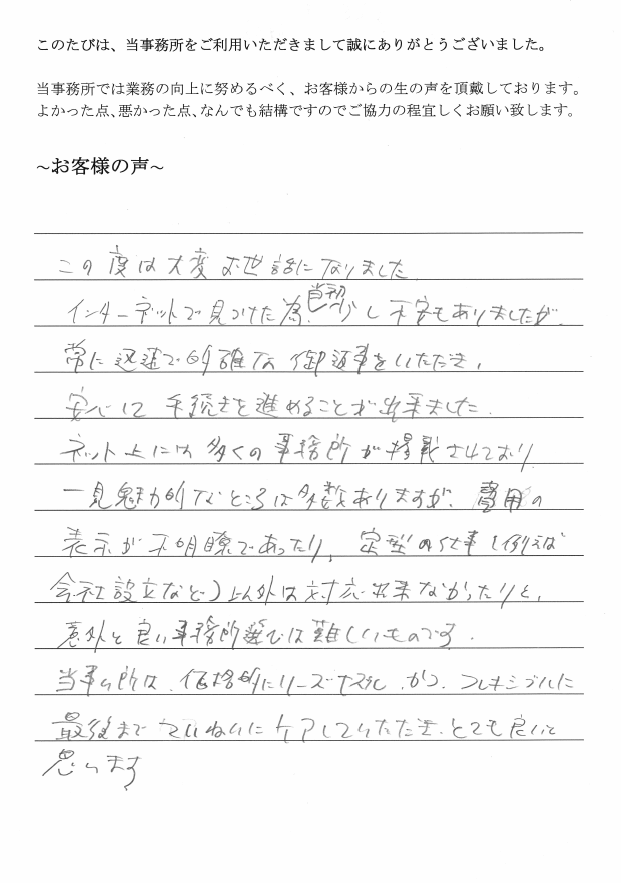 このたびは、当事務所をご利用いただきまして誠にありがとうございました。
当事務所では業務の向上に努めるべく、お客様からの生の声を頂戴しております。
よかった点、悪かった点、なんでも結構ですのでご協力の程宜しくお願い致します。
~お客様の声~
この度は大変お世話になりました
インターネットで見つけた為、当初少し不安もありましたが、
常に迅速で的確な御返事をいただき、
安心して手続きを進めることが出来ました。
ネット上には多くの事務所が掲載されており
一見魅力的なところは多数ありますが、費用の
表示が不明瞭であったり、定型の仕事(例えば
会社設立など)以外は対応出来なかったりと、
意外と良い事務所選びは難しいものです。
当事ム所は、価格的にリーズナブル、かつ、フレキシブルに
最後までていねいにケアしていただき、とても良いと
思います